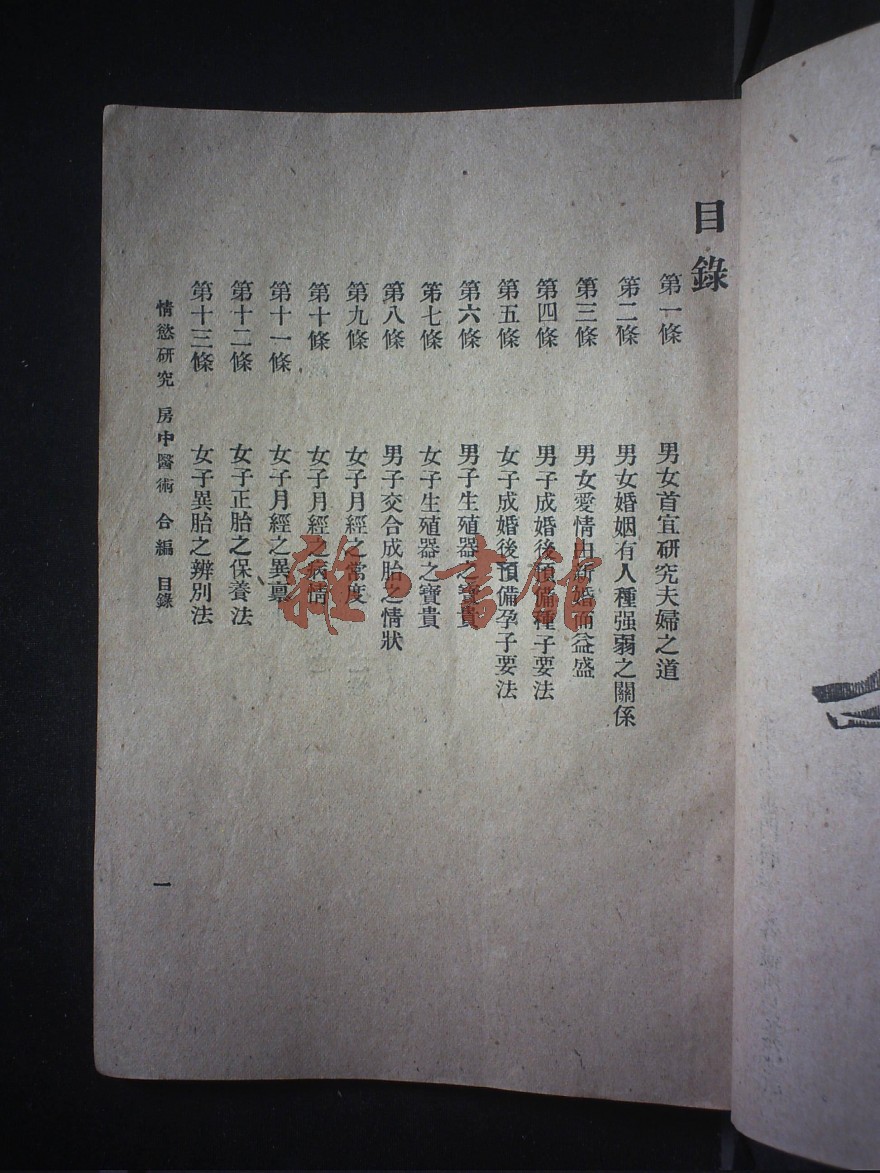 目錄
第一條 男女首宜研究夫婦之道
第二條 男女婚姻有人種强弱之關係
第三條 男女愛情由新婚而益盛
第四條 男子成婚後預備種子要法
第五條 女子成婚後預備孕子要法
第六條 男子生殖器之寶貴
第七條 女子生殖器之寶貴
第八條 男子交合成胎之情狀
第九條 女子月經之常度
第十條 女子月經之病情
第十一條 女子月經之異稟
第十二條 女子正胎之保養法
第十三條 女子異胎之辨別法
情慾研究 房中醫術 合編 目錄
一
雜·書館